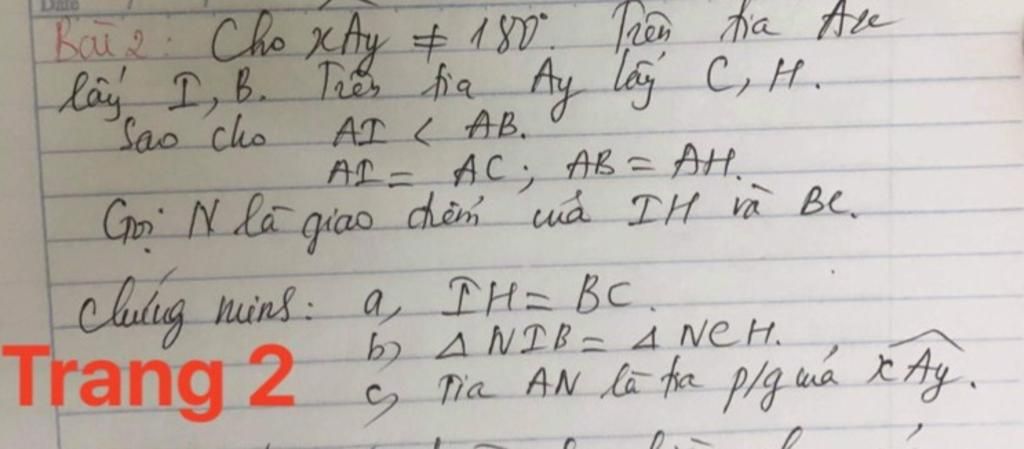 Bài 2: Cho xAy ≠ 180°. Trên tia Ax
lấy I, B. Trên tia Ay lấy C, H.
Sao cho AI < AB.
AI = AC; AB = AH.
Gọi N là giao điểm của IH và BC.
Chứng minh: a, IH = BC.
b) Δ NIB = Δ NCH.
Trang 2
c, Tia AN là tia p/g của xAy.